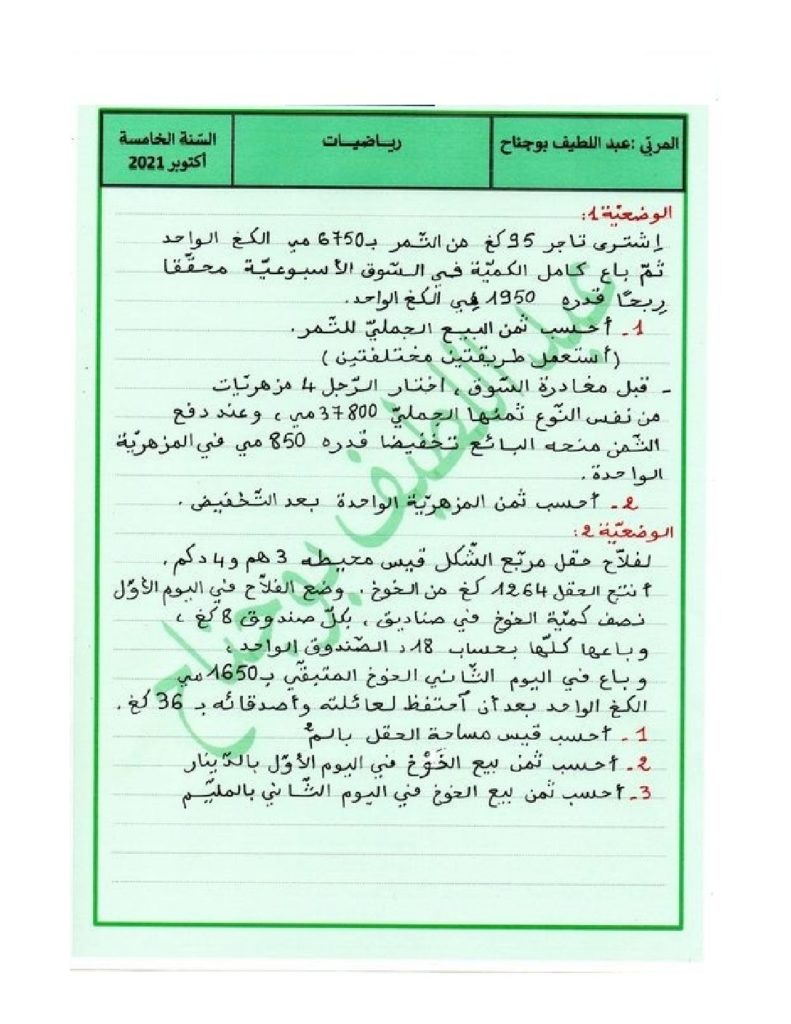 المربّي :عبد اللطيف بوجناح
رياضيات
السّنة الخامسة
أكتوبر 2021
الوضعيّة 1:
إشترى تاجر 95 كغ من التّمر بـ 6750 مي الكغ الواحد
ثمّ باع كامل الكميّة في السّوق الأسبوعيّة محقّقا
ربحًا قدره 1950 في الكغ الواحد.
1 ـ أحسب ثمن البيع الجمليّ للتّمر.
(أستعمل طريقتين مختلفتين)
ـ قبل مغادرة السّوق ، اختار الرّجل 4 مزهريّات
من نفس النّوع ثمنها الجمليّ 37800 مي ، وعند دفع
الثّمن منحه البائع تخفيضا قدره 850 مي في المزهريّة
الواحدة.
2 ـ أحسب ثمن المزهريّة الواحدة بعد التّخفيض.
الوضعيّة 2:
لفلاّح حقل مربّع الشّكل قيس محيطه 3 هم و 4 دكم.
أنتج الحقل 1264 كغ من الخوخ. وضع الفلاّح في اليوم الأوّل
نصف كميّة الخوخ في صناديق ، بكلّ صندوق 8 كغ ،
وباعها كلّها بحساب 18 د الصّندوق الواحد ،
وباع في اليوم الثّاني الخوخ المتبقّي بـ 1650 مي
الكغ الواحد بعد أن احتفظ لعائلته وأصدقائه بـ 36 كغ.
1 ـ أحسب قيس مساحة الحقل بالم²
2 ـ أحسب ثمن بيع الخَوْخ في اليوم الأوّل بالدّينار
3 ـ أحسب ثمن بيع الخوخ في اليوم الثّاني بالملّيم
عبد اللطيف بوجناح